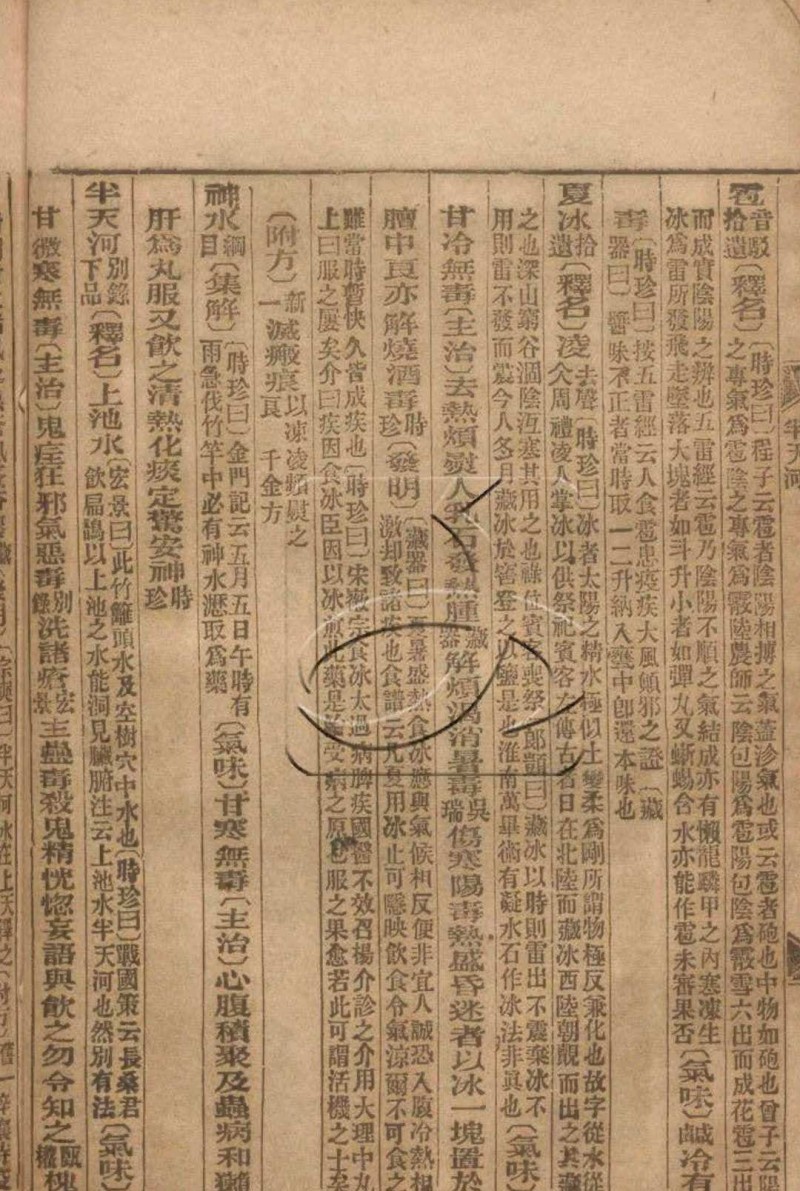 雹音駮拾遺〔釋名〕〔時珍曰〕程子云雹者陰陽相搏之氣蓋沴氣也或云雹者砲也中物如砲也曾子云陽
之專氣爲雹陰之專氣爲霰陸農師云陰包陽爲雹陽包陰爲霰雪六出而成花雹三出
而成實陰陽之辨也五雷經云雹乃陰陽不順之氣結成亦有懶龍鱗甲之內寒凍生
冰爲雷所發飛走墜落大塊者如斗升小者如彈丸又蜥蜴含水亦能作雹未審果否〔氣味〕鹹冷有
毒〔時珍曰〕按五雷經云人食雹患疫疾大風顚邪之證〔藏
器曰〕醬味不正者當時取一二升納入甕中卽還本味也
夏冰拾遺〔釋名〕凌去聲〔時珍曰〕冰者太陽之精水極似土變柔爲剛所謂物極反兼化也故字從水從
仌周禮凌人掌冰以供祭祀賓客左傳古者日在北陸而藏冰西陸朝覿而出之其藏
之也深山窮谷涸陰沍寒其用之也祿位賓客喪祭〔郎顗曰〕藏冰以時則雷出不震棄冰不
用則雷不發而震今人冬月藏冰於窖登之以鹽是也淮南萬畢術有凝水石作冰法非眞也〔氣味〕
甘冷無毒〔主治〕去熱煩熨人乳石發熱腫藏器解煩渴消暑毒吳瑞傷寒陽毒熱盛昏迷者以冰一塊置於
膻中良亦解燒酒毒時珍〔發明〕〔藏器曰〕夏暑盛熱食冰應與氣候相反便非宜人誠恐入腹冷熱相
激却致諸疾也食譜云凡夏用冰止可隱映飲食令氣涼爾不可食之
雖當時暫快久皆成疾也〔時珍曰〕宋徽宗食冰太過病脾疾國醫不效召楊介診之介用大理中丸
上曰服之屢矣介曰疾因食冰臣因以冰煎此藥是治受病之原也服之果愈若此可謂活機之士矣
〔附方〕新一滅瘢痕以凍凌頻熨之良千金方
神水綱目〔集解〕〔時珍曰〕金門記云五月五日午時有
雨急伐竹竿中必有神水瀝取爲藥〔氣味〕甘寒無毒〔主治〕心腹積聚及蟲病和獺
肝爲丸服又飲之淸熱化痰定驚安神時珍
半天河別錄下品〔釋名〕上池水〔宏景曰〕此竹籬頭水及空樹穴中水也〔時珍曰〕戰國策云長桑君
飲扁鵲以上池之水能洞見臟腑注云上池水半天河也然別有法〔氣味〕
甘微寒無毒〔主治〕鬼疰狂邪氣惡毒別錄洗諸瘡宏景主蠱毒殺鬼精恍惚妄語與飲之勿令知之甄權槐
半天河